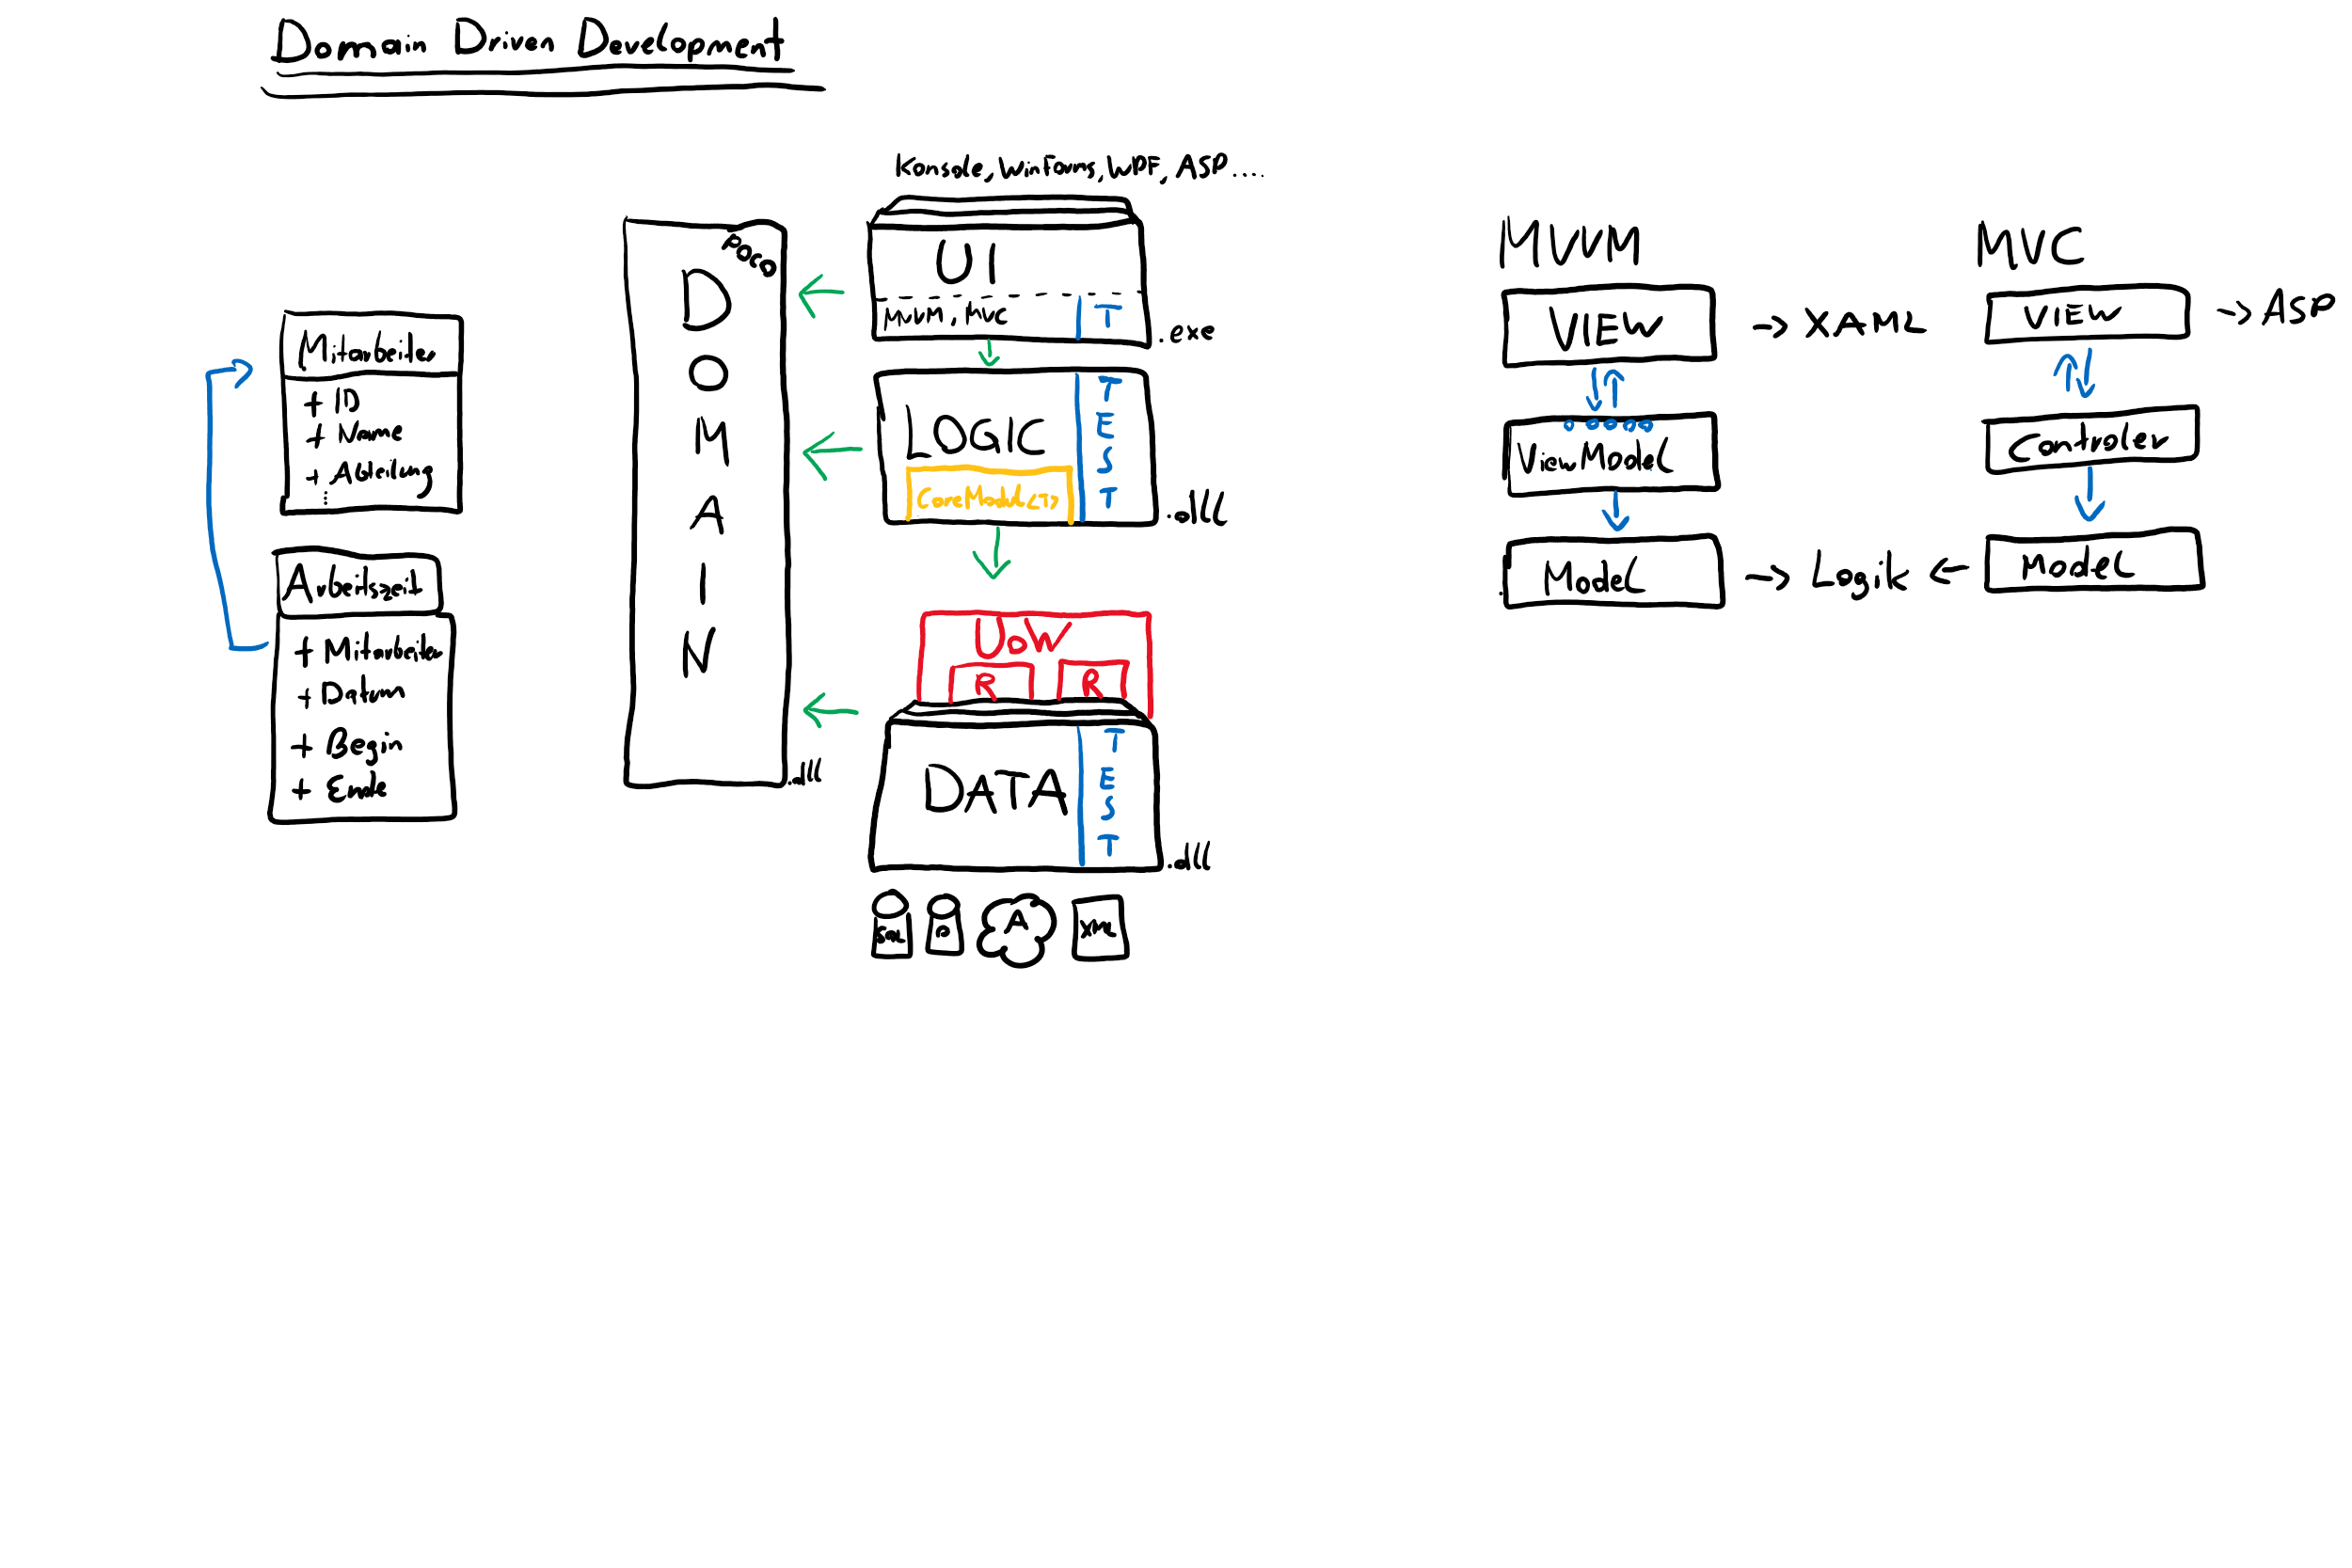 Domain Driven Development
Mitarbeiter
+ ID
+ Name
+ Abteilung
⋮
Arbeitszeit
+ Mitarbeiter
+ Datum
+ Begin
+ Ende
POCO
DOMAIN
.dll
Konsole, WinForms, WPF, ASP....
UI
MVVM, MVC
T
.exe
LOGIC
CoreModul<T>
TEST
.dll
UoW
R R
DATA
TEST
.dll
SQL
O
A
XML
MVVM
VIEW -> XAML
ViewModel
Model -> Logik <-
MVC
VIEW -> ASP
Controler
Model